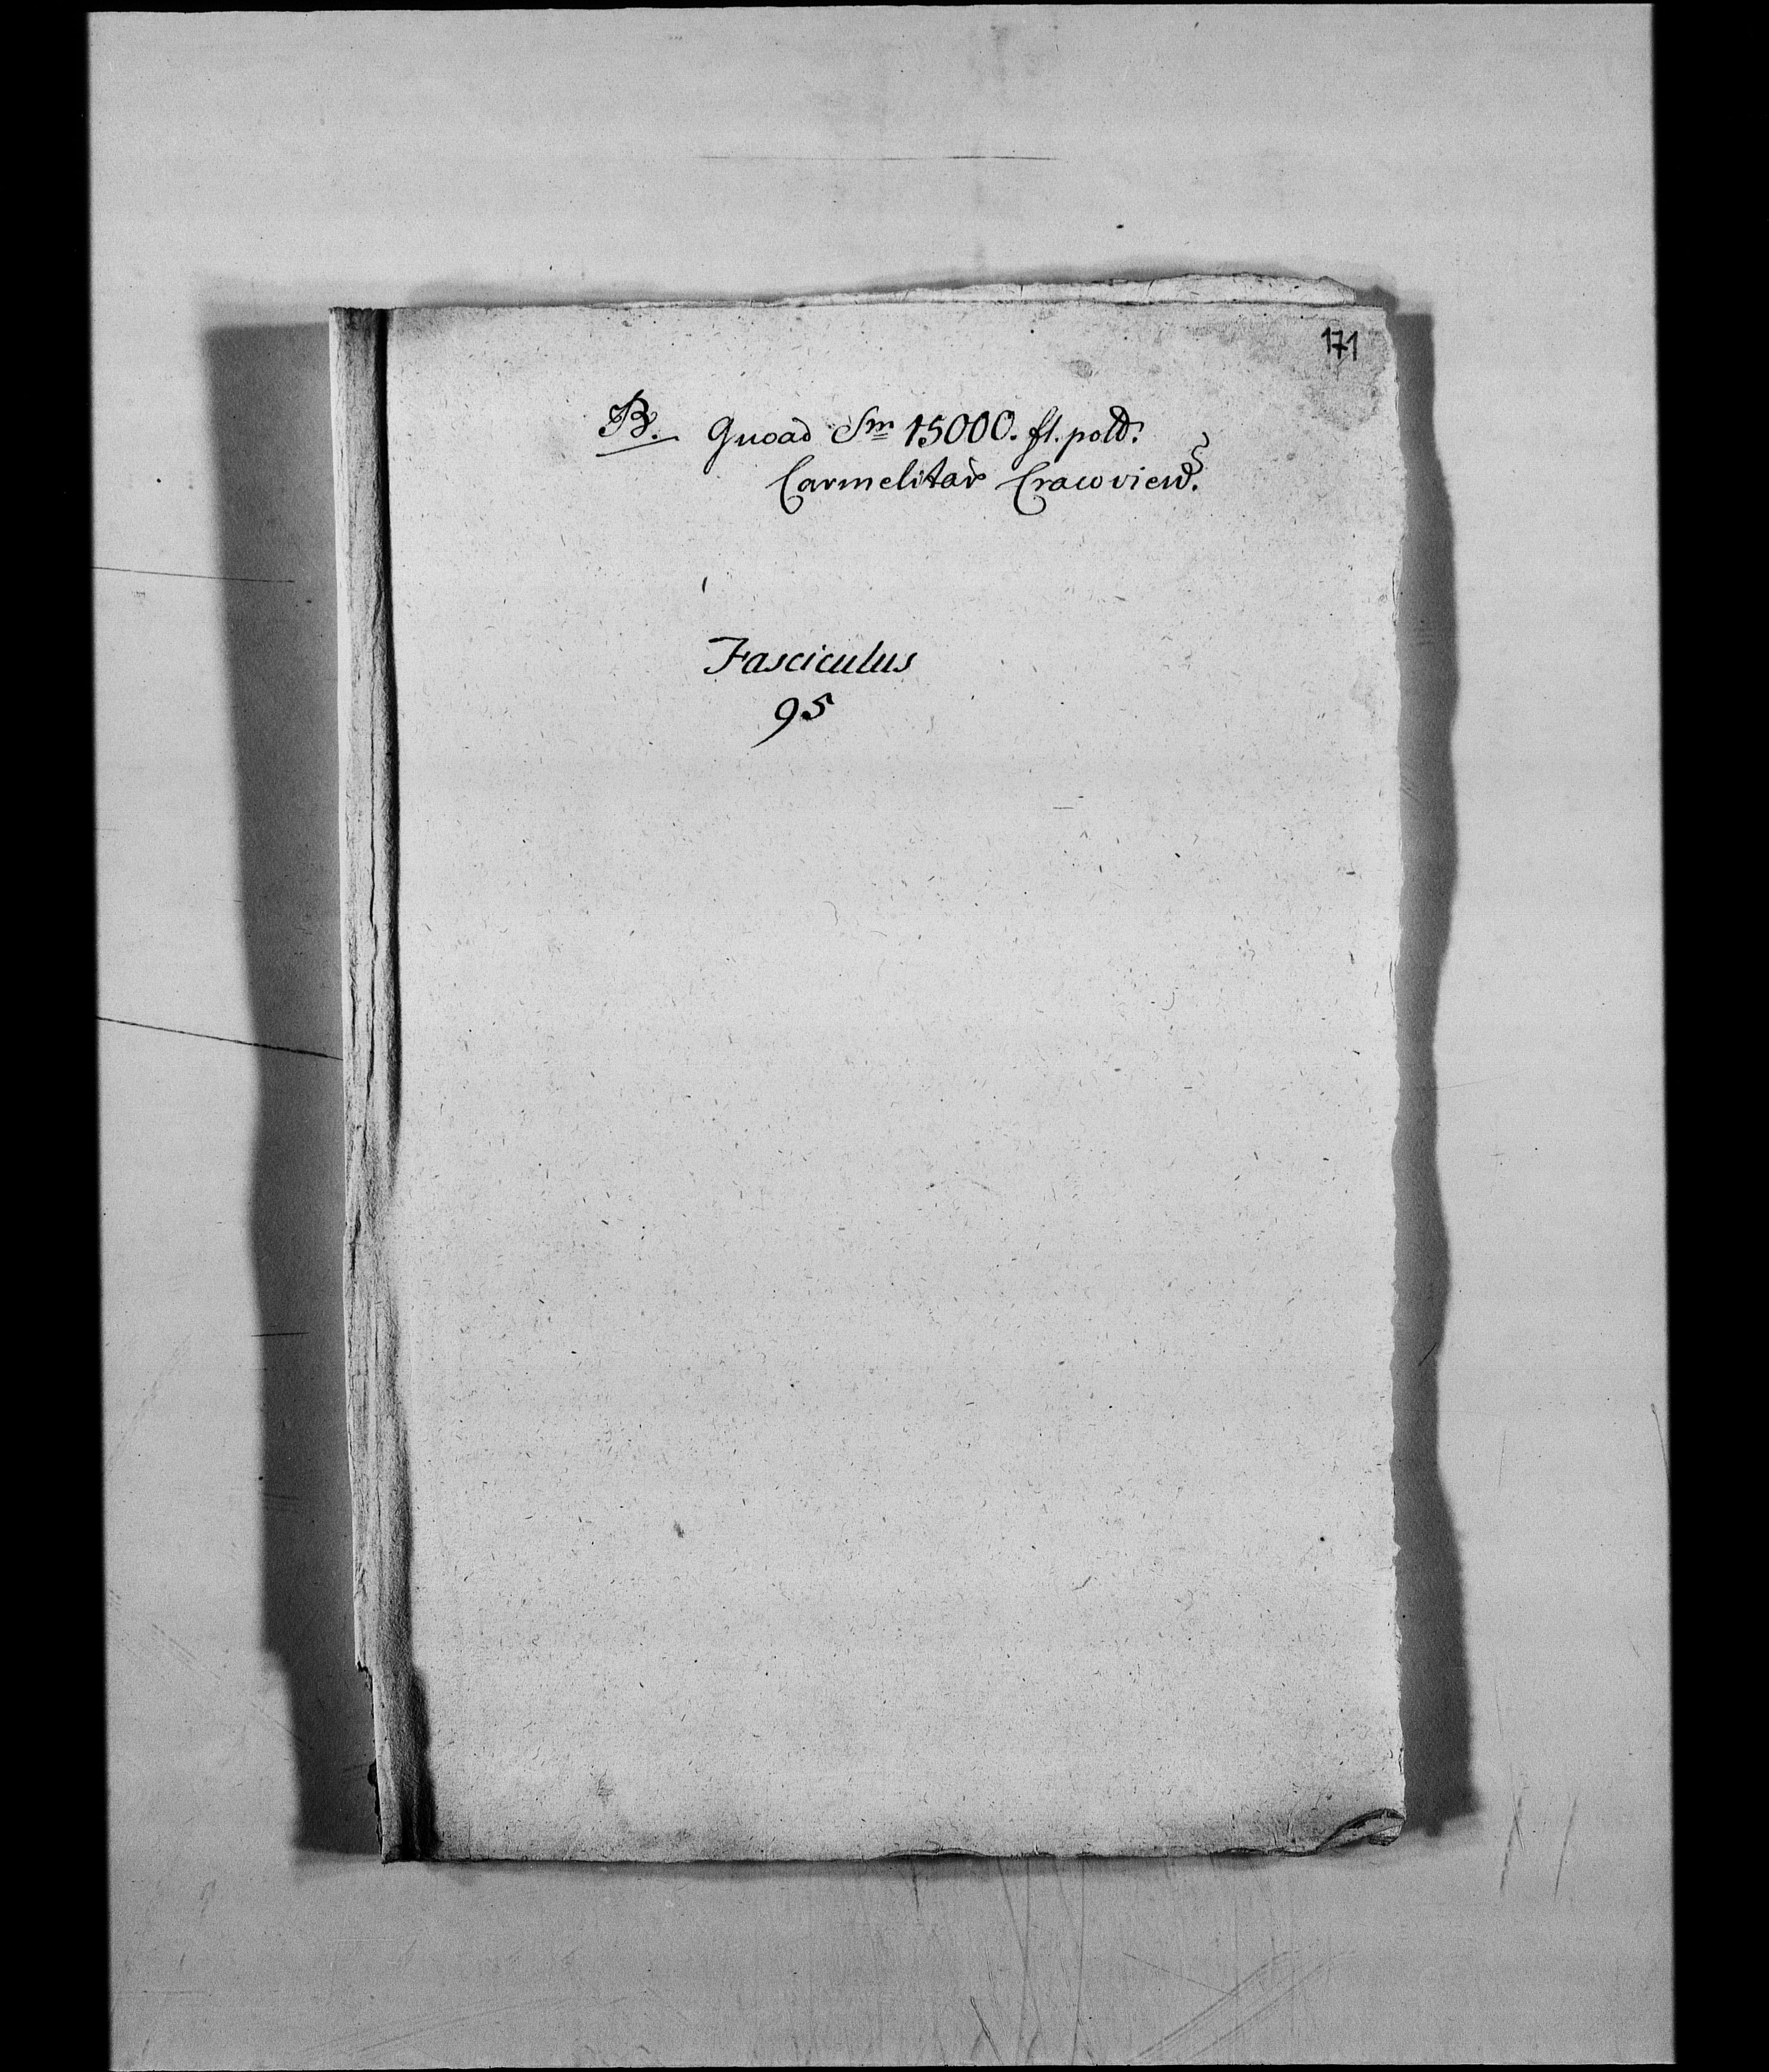 171
B. Quoad Sm 15000. fl. pold.
Carmelitar Cracoviens.
Fasciculus
95